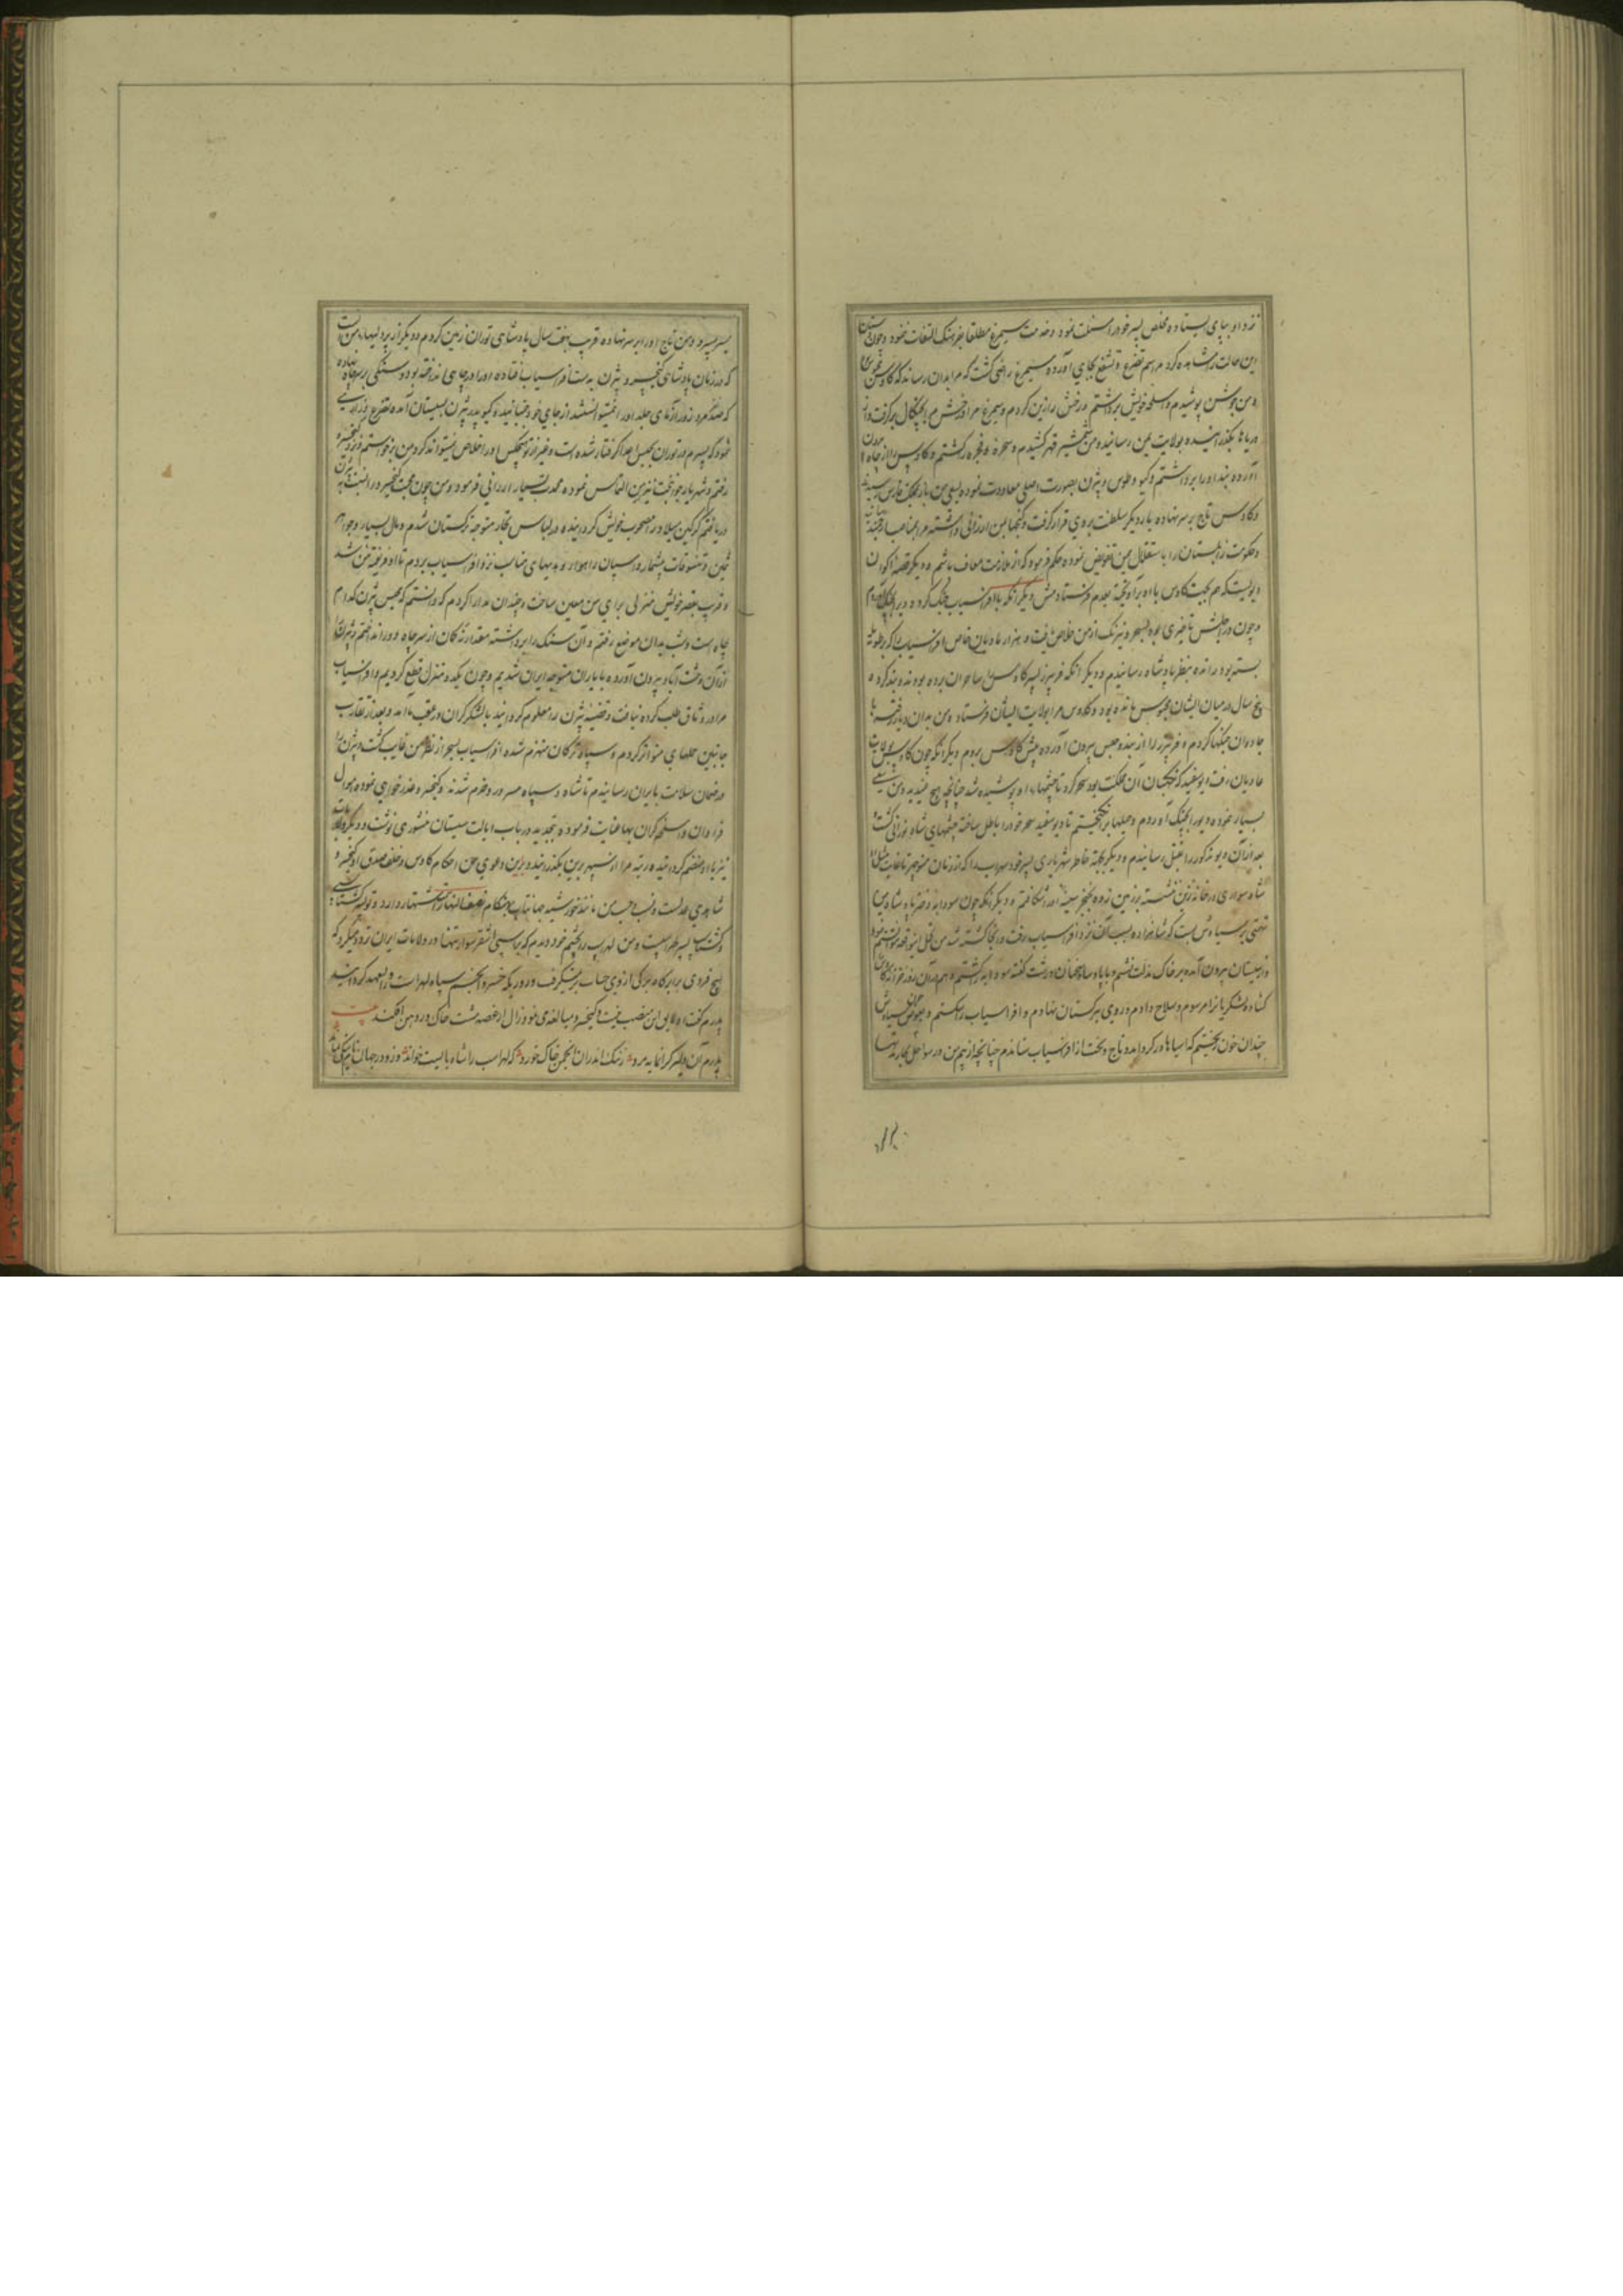 نزد او بپای ایستاده مخلص پسر خود را مسئلت نمود و خدمت سیمرغ مطلقا بفرهنگ التفات ننمود و چون دستان
این حالت را مشاهده کرد مراسم تضرع و تشفع بجای آورده سیمرغ راضی گشت که مرا بدان رساند که کاوس
و من جوشن پوشیدم و اسلحه خویش برداشتم و رخش را زین کردم و سیمرغ مرا و رخش مرا بچنگال برگرفت و از
دریاها بگذرانیده بولایت یمن رسانیده و من شمشیر قهر کشیدم و سحره و فجره را کشتم و کاوس را از چاه بیرون
آورده بند او را برداشتم و گیو و طوس و بیژن بصورت اصلی معاودت نموده بسعی من باز بملک فارس رسیدند
و کاوس تاج بر سر نهاده بار دیگر سلطنت بر وی قرار گرفت و گنجها بمن ارزانی داشته مرا
و حکومت زابلستان را باستقلال بمن تفویض نموده حکم فرمود که از ملازمت معاف باشم و دیگر قصه اکوان
دیویست که هم بجهت کاوس با او برآویخته بعدم فرستادمش و دیگر آنکه با افراسیاب جنگ کرده
و چون در اجلش تاخیری بود بسحر و نیرنگ از من خلاص یافت و هزار مادیان خاص افراسیاب را که بر طویله
بسته بود رانده بنظر پادشاه رسانیدم و دیگر آنکه فریبرز پسر کاوس را ساحران برده بودند و بند کرده
پنج سال در میان ایشان محبوس مانده بود و کاوس مرا بولایت ایشان فرستاد و من بدان دیار رفته با
جادوان جنگها کردم و فریبرز را از بند و حبس بیرون آورده پیش کاوس بردم و دیگر آنکه چون کاوس
مادیان رفت دیو سفید که نگهبان آن مملکت بود سحر کرد تا چشمهاء او پوشیده شد چنانچه هیچ ندید و من سعی
بسیار نموده دیو را بچنگ آوردم و حیلها برانگیختم تا دیو سفید سحر خود را باطل ساخته چشمهای شاه نورانی گشت و
بعد از آن دیو مذکور را بقتل رسانیدم و دیگر بجهة خاطر شهریاری پسر خود سهراب را که از زمان منوچهر تا غایت مثل او
شاه سواری در خانه زین ننشسته بر زمین زده بخنجر سینه اورا شکافتم و دیگر آنکه چون سودابه دختر پادشاه یمن
تهمتی بر سیاوش بست که شاهزاده بسبب آن نزد افراسیاب رفت و آنجا کشته شد من قبل
و از سیستان بیرون آمده بر خاک مذلت نشستم و با پادشاه سخنان درشت گفته سودابه را کشتم و هم در آن روز در خزانه کاوس
گشاده لشکریانرا مرسوم و سلاح دادم و روی بترکستان نهادم و افراسیاب را شکستم و بعوض خون سیاوش
چندان خون ریختم که آسیاها در گردید و تاج و تخت از افراسیاب ستاندم چنانچه از بیم من در سواحل بحار تنها
بسر میبرد و من تاج او را بر سر نهاده قریب هفت سال پادشاهی توران زمین کردم و دیگر از پردلیهاء من آنست
که در زمان پادشاهی کیخسرو بیژن بدست افراسیاب افتاده او را در چاهی انداخته بود و سنگی بر سر چاه نهاده
که صد مرد زورآزمای جلد آنرا نمیتوانستند از جای خود جنبانید و گیو پدر بیژن بسیستان آمده تضرع و زاری
نمود که پسرم در توران بچنین بلا گرفتار شده است و غیر از تو هیچکس او را خلاص نمیتواند کرد و من برخاستم و نزد کیخسرو
رفتم و شهریار جوانبخت نیز همین التماس نموده محمدت بسیار ارزانی فرمود و من چون محبت کیخسرو را نسبت به بیژن
دریافتم گرگین میلاد را مصحوب خویش گردانیده در لباس تجار متوجه ترکستان شدم و مال بسیار و جواهر
ثمین و تنسوقات بیشمار و اسپان راهوار و هدیهای مناسب نزد افراسیاب بردم تا او فریفته من شد
و قریب بقصر خویش منزلی برای من معین ساخت و چندان مدارا کردم که دانستم که محبس بیژن کدام
چاه است و شب بدان موضع رفتم و آن سنگ را برداشته مقدار از سر چاه دور انداختم و بیژن را
از آن وحشت آباد بیرون آورده با یاران متوجه ایران شدیم و چون یکدو منزل قطع کردیم و افراسیاب
مرا در وثاق طلب کرده نیافت و قضیه بیژن را معلوم گردانید با لشکر گران در عقب ما آمد و بعد از تقارب
جانبین حملهای متواتر کردم و سپاه ترکان منهزم شده افراسیاب بسحر از نظر من غایب گشت و بیژن را
در ضمان سلامت بایران رسانیدم تا شاه و سپاه مسرور و خرم شدند و کیخسرو عذرخواهی نموده اموال
فراوان و اسلحه گران بها عنایت فرموده بتجدید در باب ایالت سیستان منشوری نوشت و دیگر ولایت
نیز باو منضم گردانیده رتبه مرا از سپهر برین بگذرانید و برین دعوی من احکام کاوس و خلف صدق او کیخسرو
شاهدی عدلست و نسب من مانند خورشید جهانتاب بهنگام نصف النهار اشتهار دارد و تو پسر گشتاسبی
و گشتاسب پسر لهراسبست و من لهراسب را بچشم خود دیدم که بر اسپی اشقر سوار تنها در ولایات ایران تردد میکرد که
هیچ فردی برابر کاه برگی از وی حساب بر نمیگرفت و روزیکه خسرو انجم سپاه لهراسب را ولیعهد گردانید
پدرم گفت او لایق این منصب نیست و کیخسرو مبالغه می نمود زال از غصه مشت خاک در دهن افکند بیت
پدرم آن دلیر گرانمایه مرد ز ننگ اندران انجمن خاک خورد که لهراسب را شاه بایست خواند وزو در جهان نام